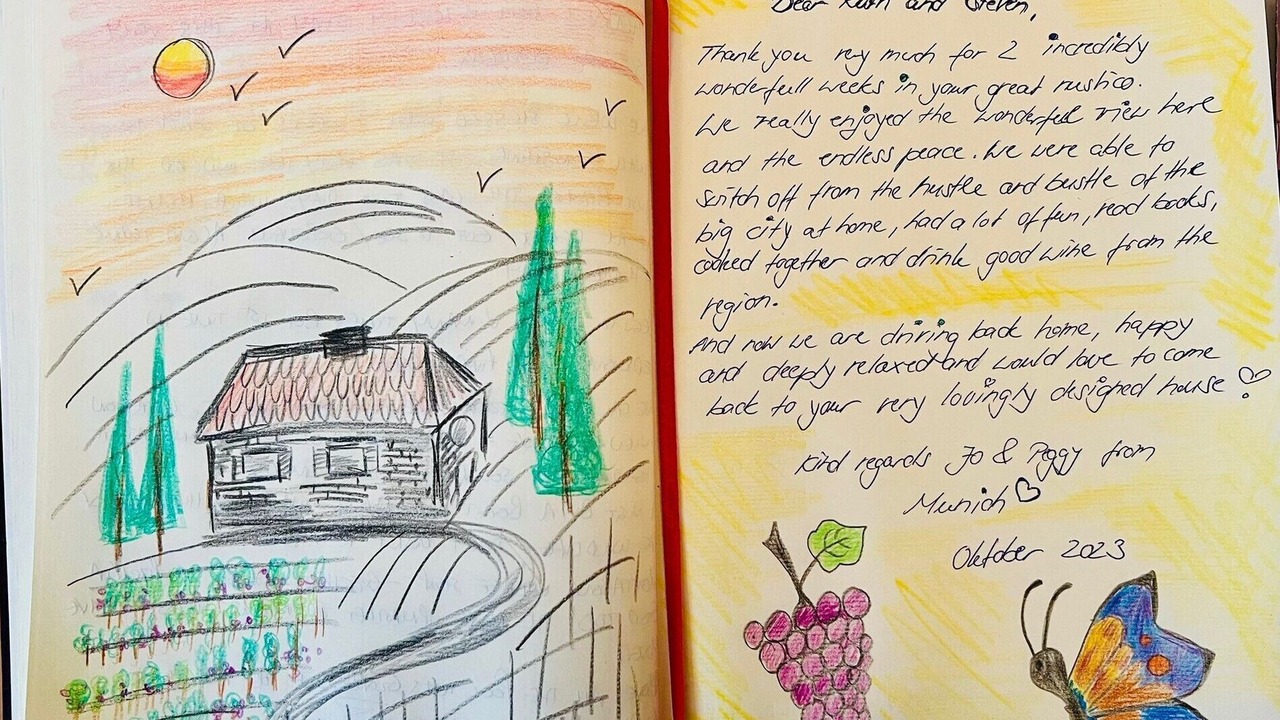 Dear Ruth and Steven,
Thank you very much for 2 incredibly
wonderfull weeks in your great rustico.
We really enjoyed the wonderfull view here
and the endless peace. We were able to
switch off from the hustle and bustle of the
big city at home, had a lot of fun, read books,
cooked together and drink good wine from the
region.
And now we are driving back home, happy
and deeply relaxed and would love to come
back to your very lovingly designed house
Kind regards Jo & Peggy from
Munich
Oktober 2023